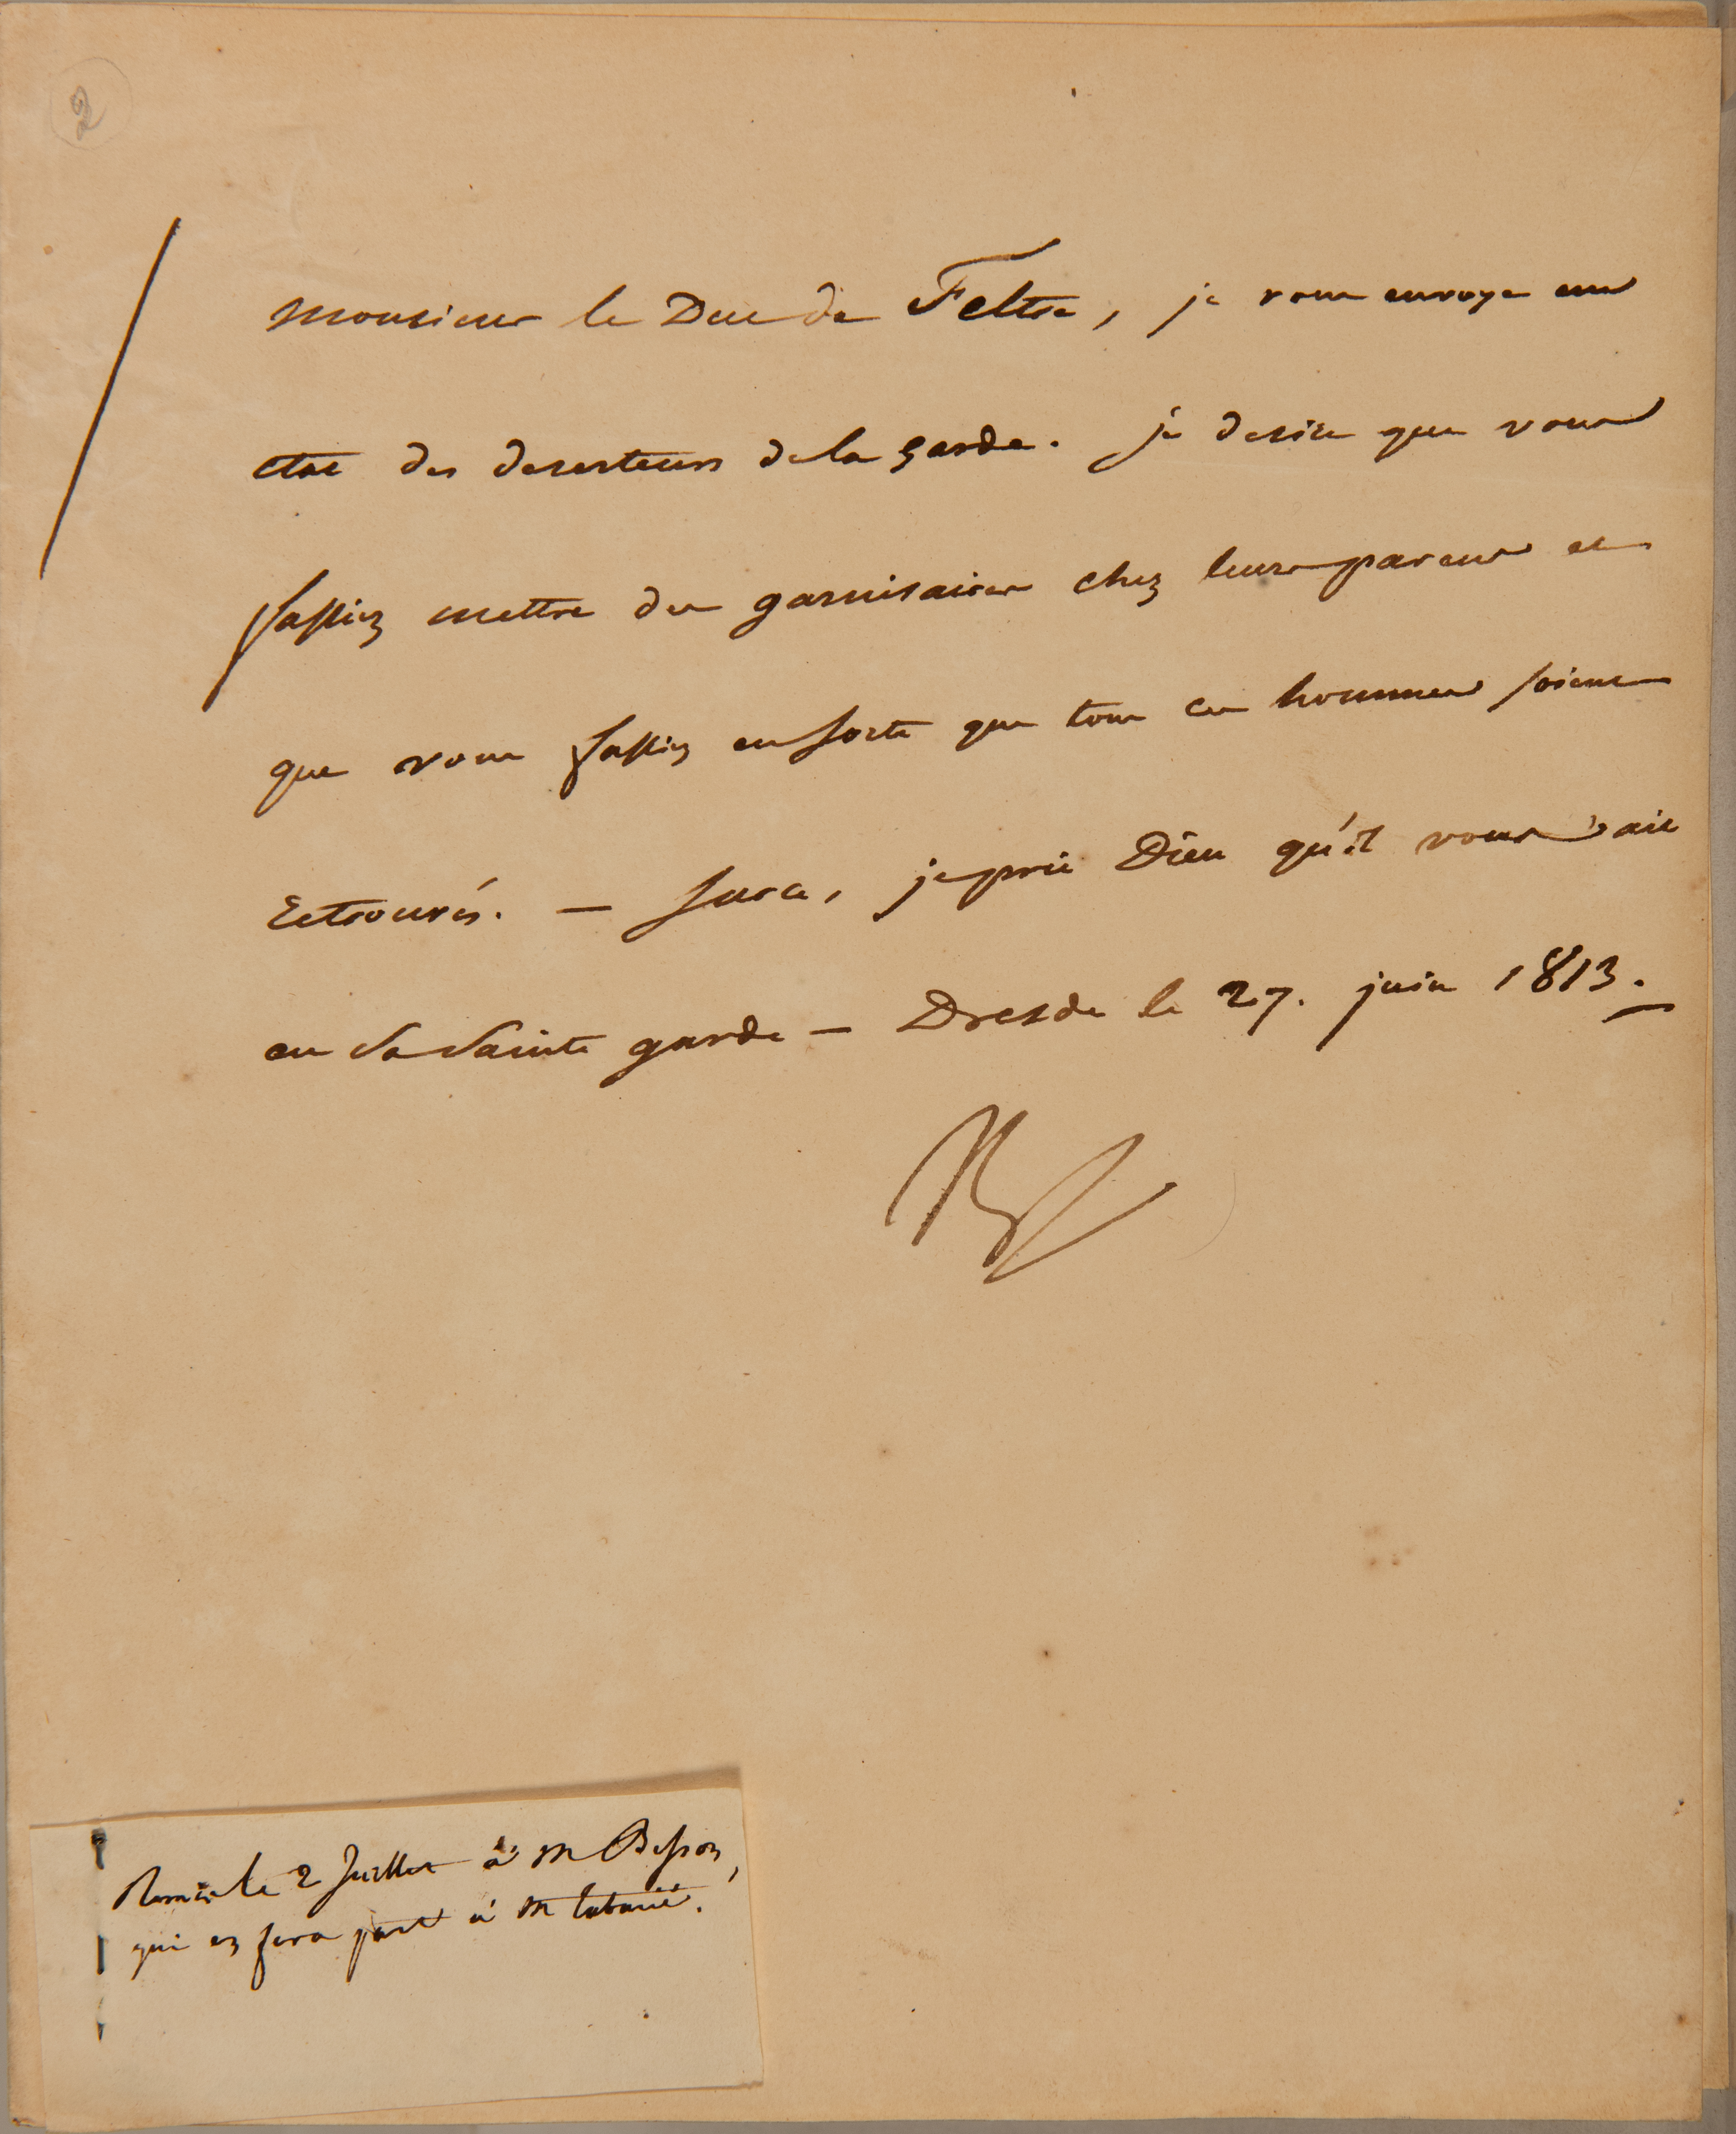 2
Monsieur le Duc de Feltre, je vous envoye un
etat des deserteurs de la garde. je desire que vous
fassiez mettre des garnisaires chez leurs parens et
que vous fassiez ensorte que tous ces hommes soient
retrouvés. — sur ce, je prie Dieu qu'il vous ait
en sa sainte garde — Dresde le 27. juin 1813.
Remis le 2 Juillet à M Besson,
qui en fera part à M tabarié.